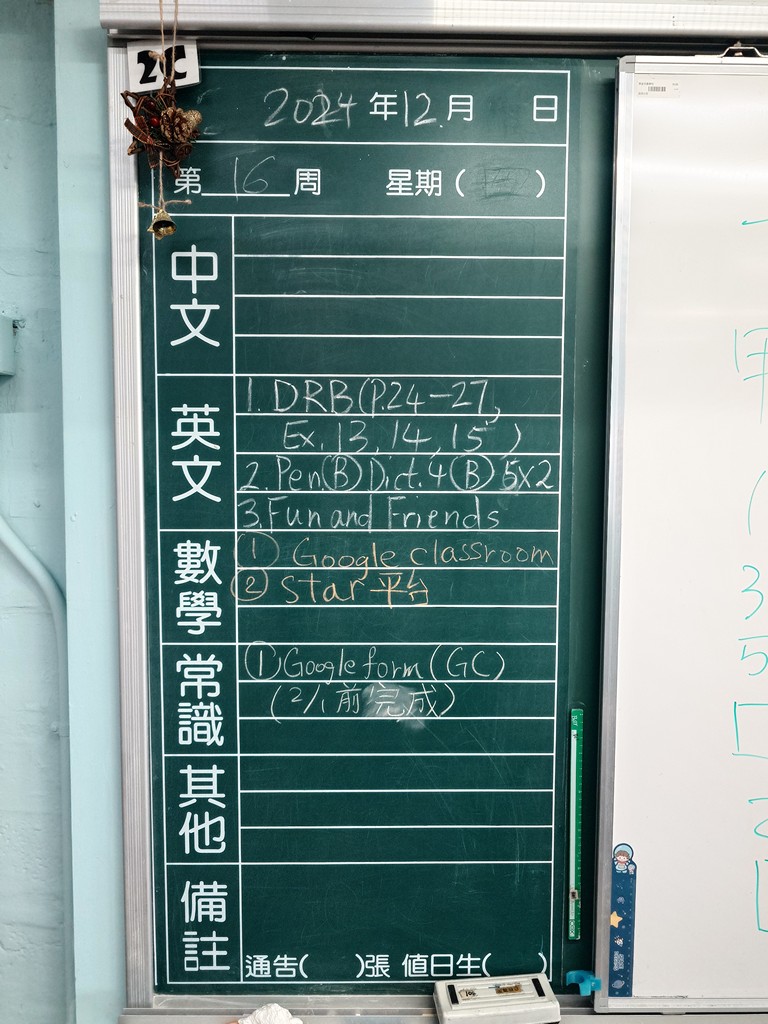 2C
2024年12月 日
第16周 星期( )
中文
英文
1. DRB(P.24-27,
Ex.13,14,15)
2. Pen.(B) Dict.4(B) 5x2
3. Fun and Friends
數學
① Google classroom
② Star 平台
常識
① Google form (GC)
(2/1前完成)
其他
備註
通告( )張 值日生( )
甲
(
3
5